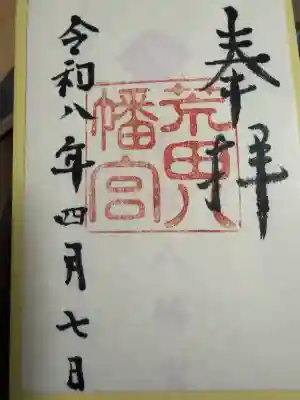 奉拝
荒田八
幡宮
令和八年四月七日